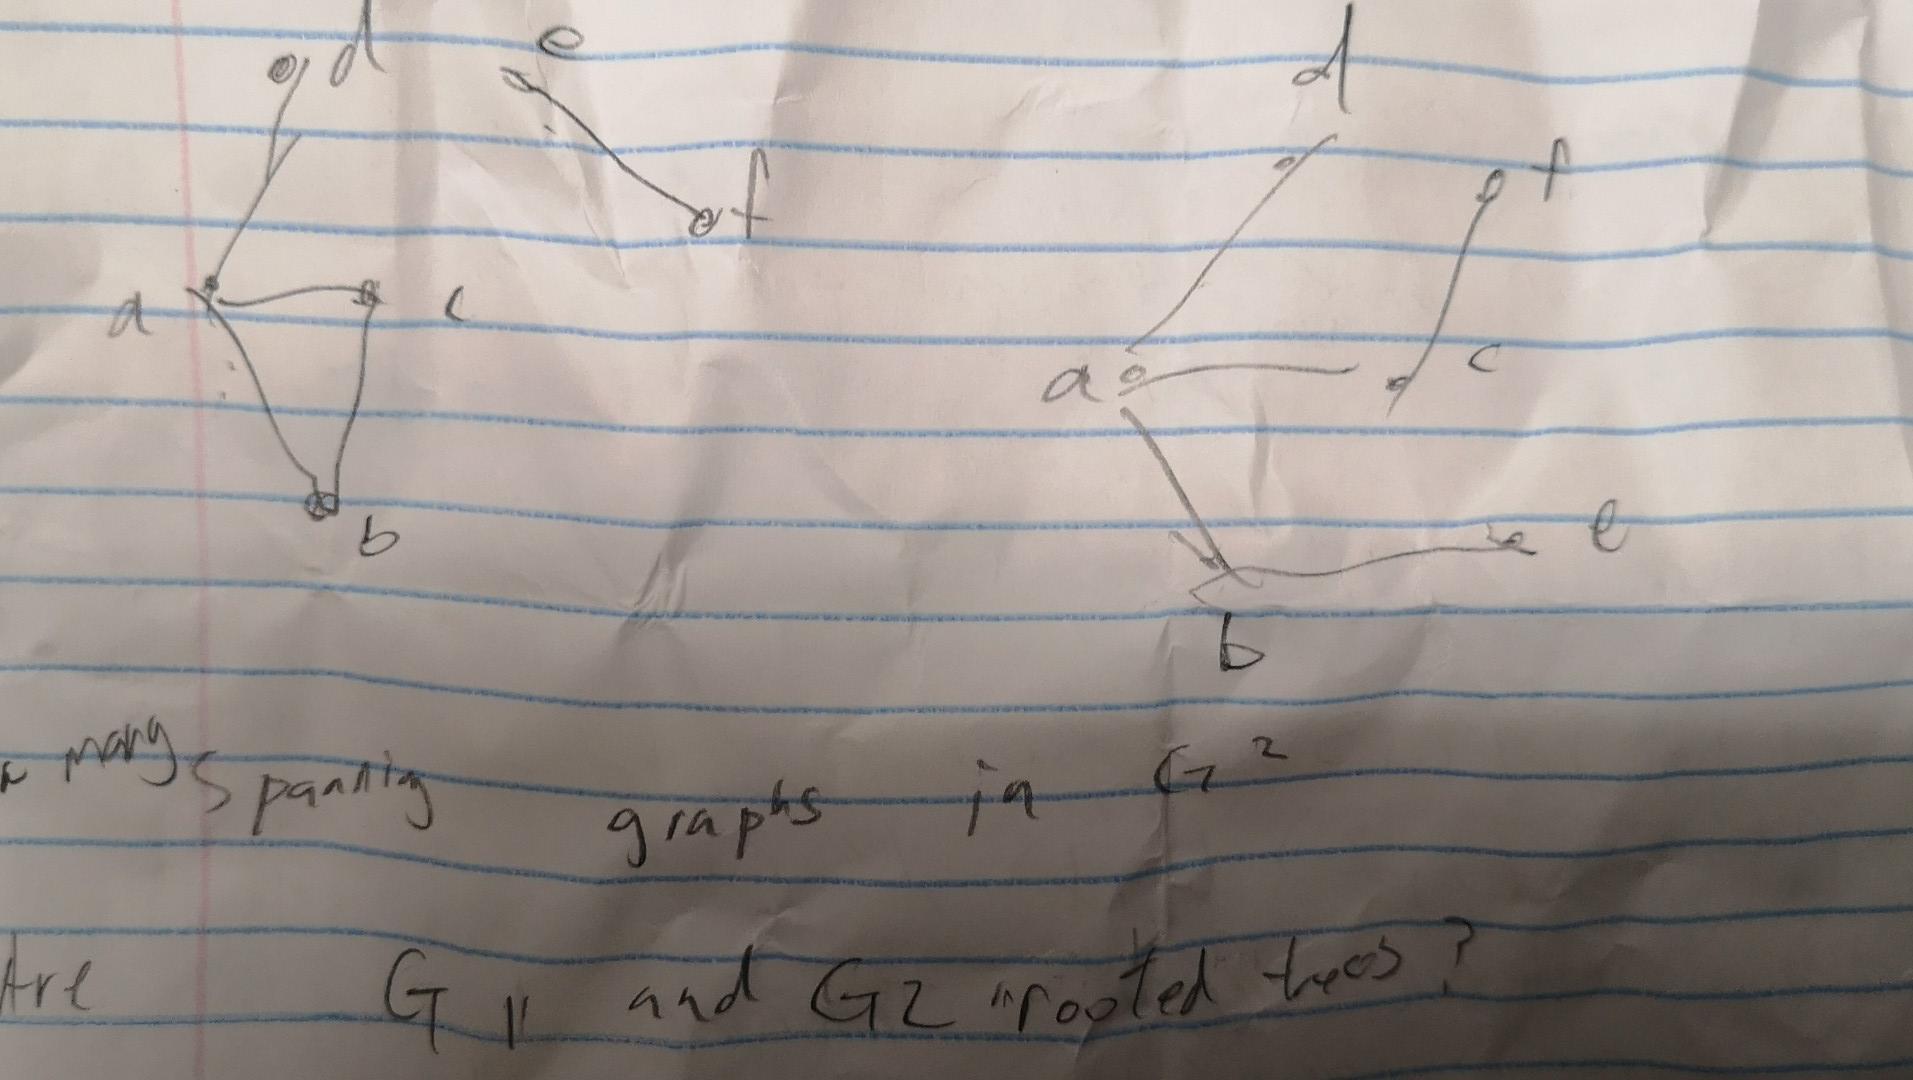 d
e
d
f
f
a
c
c
a
e
b
b
many Spannig graphs in G2
Are G11 and G2 "rooted trees?